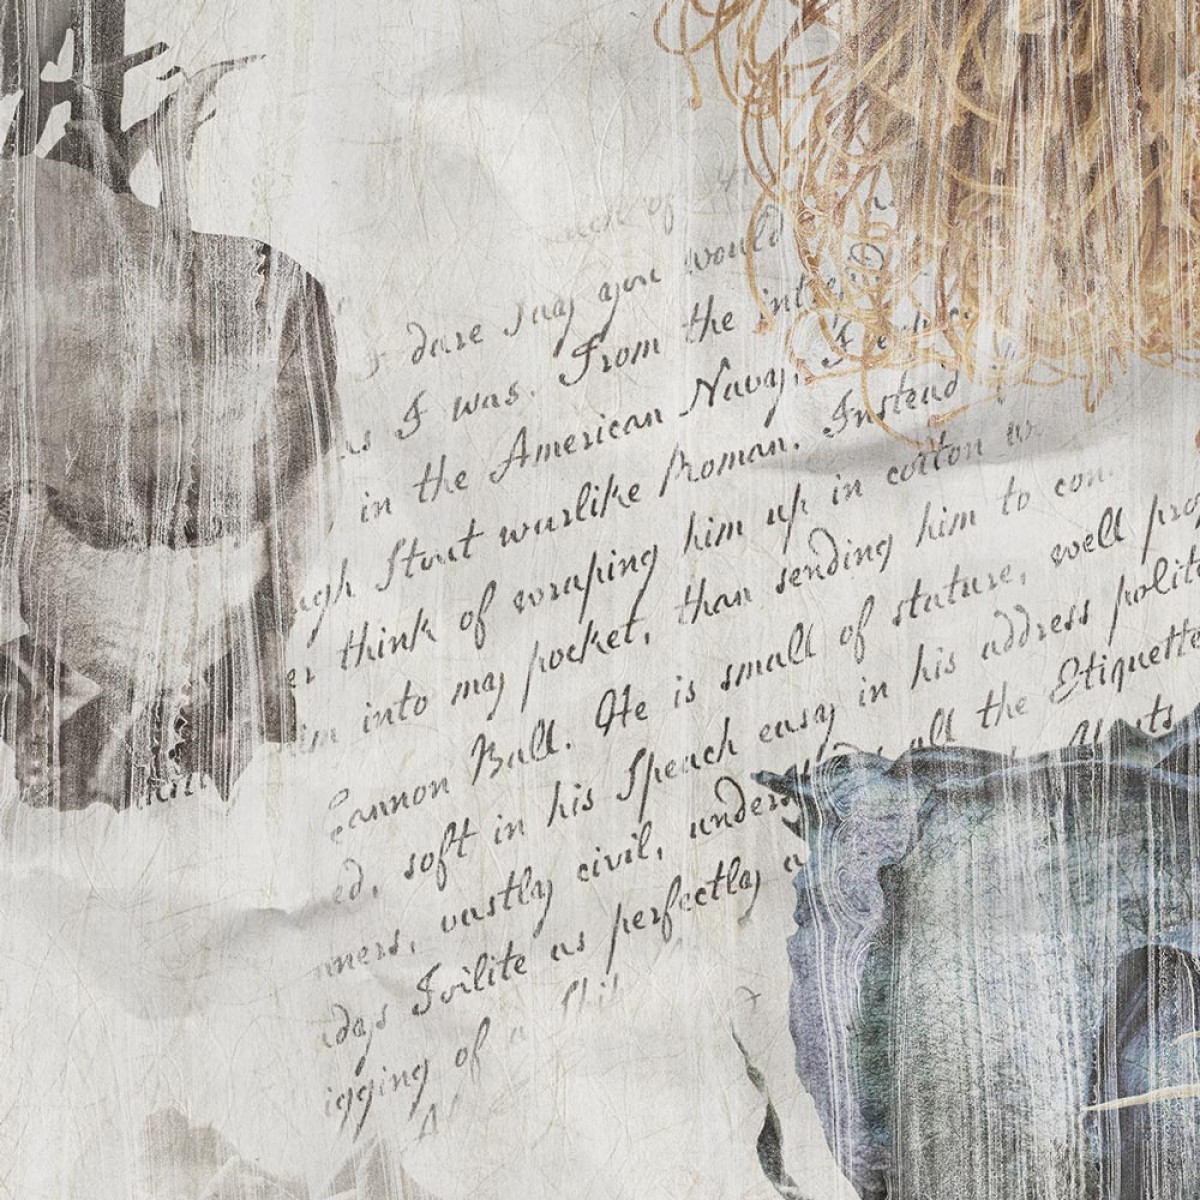 I dare say you would
as I was. From the
in the American Navy, I
ugh Stout warlike Roman. Instead
er think of wraping him up in cotton w
im into my pocket, than sending him to con
Cannon Ball. He is small of stature, well pro
ed, soft in his Speach easy in his address polite
ners, vastly civil, unders all the Etiquette
days Toilite as perfectly a
igging of a Ship